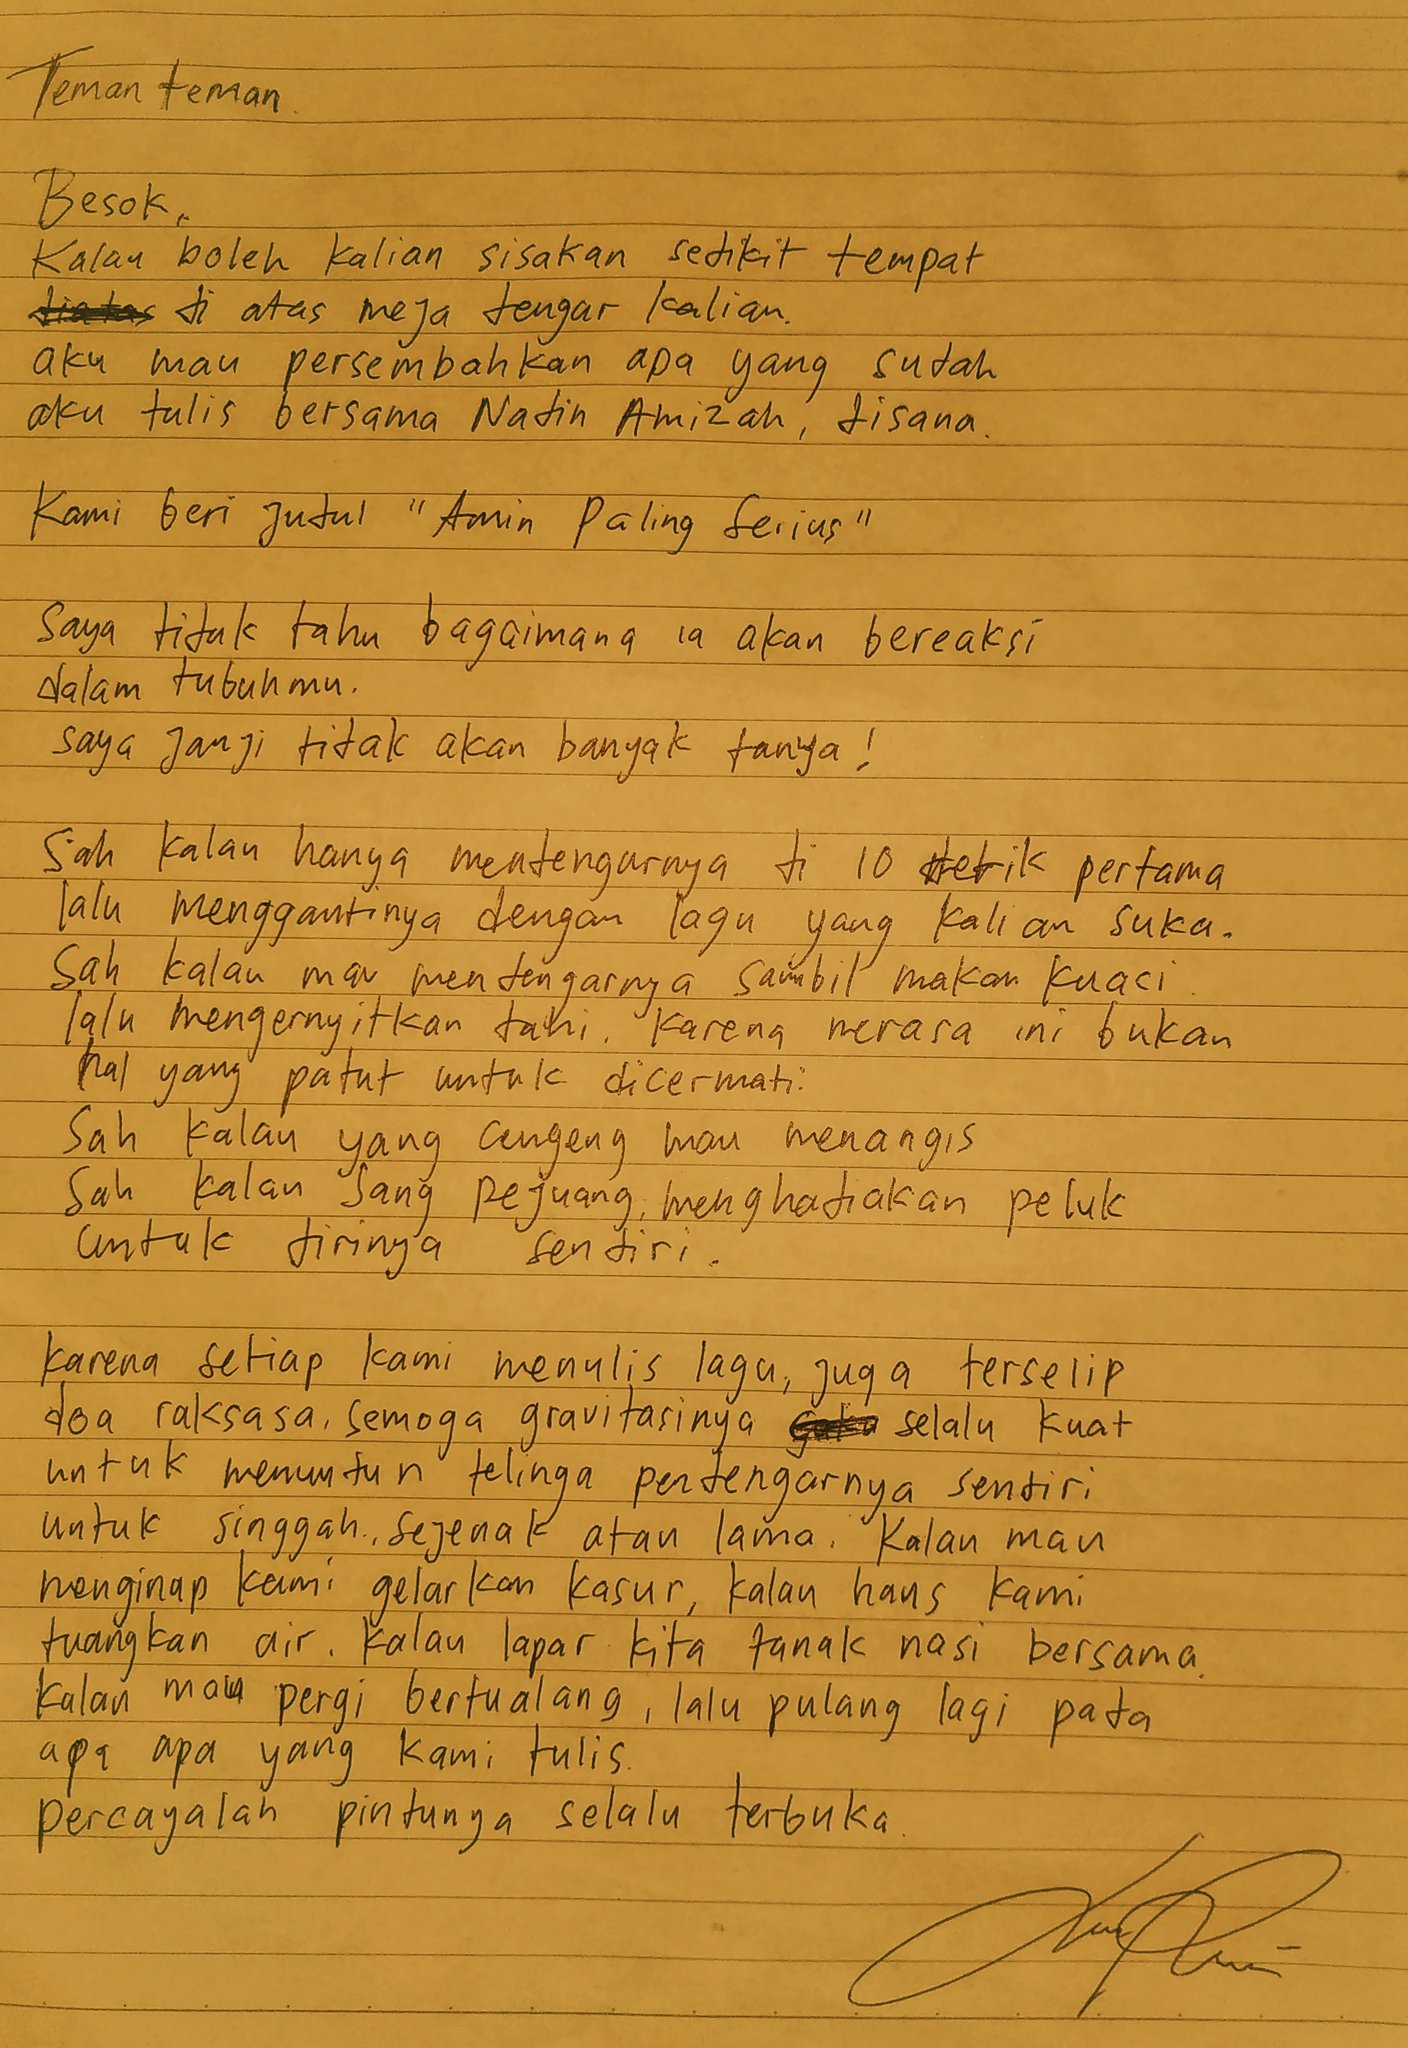 Teman teman.
Besok,
Kalau boleh kalian sisakan sedikit tempat
di atas meja dengar kalian.
aku mau persembahkan apa yang sudah
aku tulis bersama Nadin Amizah, disana.
Kami beri judul "Amin Paling Serius"
Saya tidak tahu bagaimana ia akan bereaksi
dalam tubuhmu.
saya janji tidak akan banyak tanya!
Sah kalau hanya mendengarnya di 10 detik pertama
lalu menggantinya dengan lagu yang kalian suka.
Sah kalau mau mendengarnya sambil makan kuaci
lalu mengernyitkan dahi. Karena merasa ini bukan
hal yang patut untuk dicermati.
Sah kalau yang cengeng mau menangis
Sah kalau sang pejuang, menghadiakan peluk
untuk dirinya sendiri.
Karena setiap kami menulis lagu, juga terselip
doa raksasa. semoga gravitasinya selalu kuat
untuk menuntun telinga pendengarnya sendiri
untuk singgah. sejenak atau lama. Kalau mau
menginap kami gelarkan kasur, kalau haus kami
tuangkan air. Kalau lapar kita tanak nasi bersama.
Kalau mau pergi bertualang, lalu pulang lagi pada
apa apa yang kami tulis.
percayalah pintunya selalu terbuka.